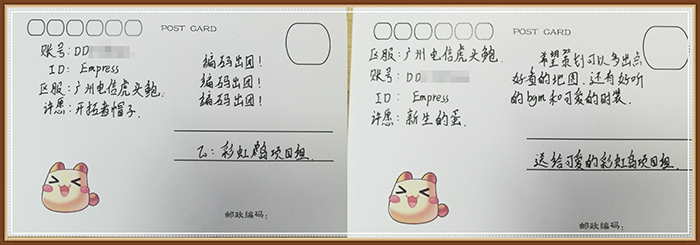 POST CARD
账号：DD
ID：Empress
区服：广州电信虎头鲍
许愿：开拓者帽子．
编码出团！
编码出团！
编码出团！
To：彩虹岛项目组．
邮政编码：
POST CARD
区服：广州电信虎头鲍．
账号：DD
ID：Empress
许愿：新生的蛋．
希望策划可以多出点
好看的地图，还有好听
的bgm和可爱的时装．
送给可爱的彩虹岛项目组．
邮政编码：